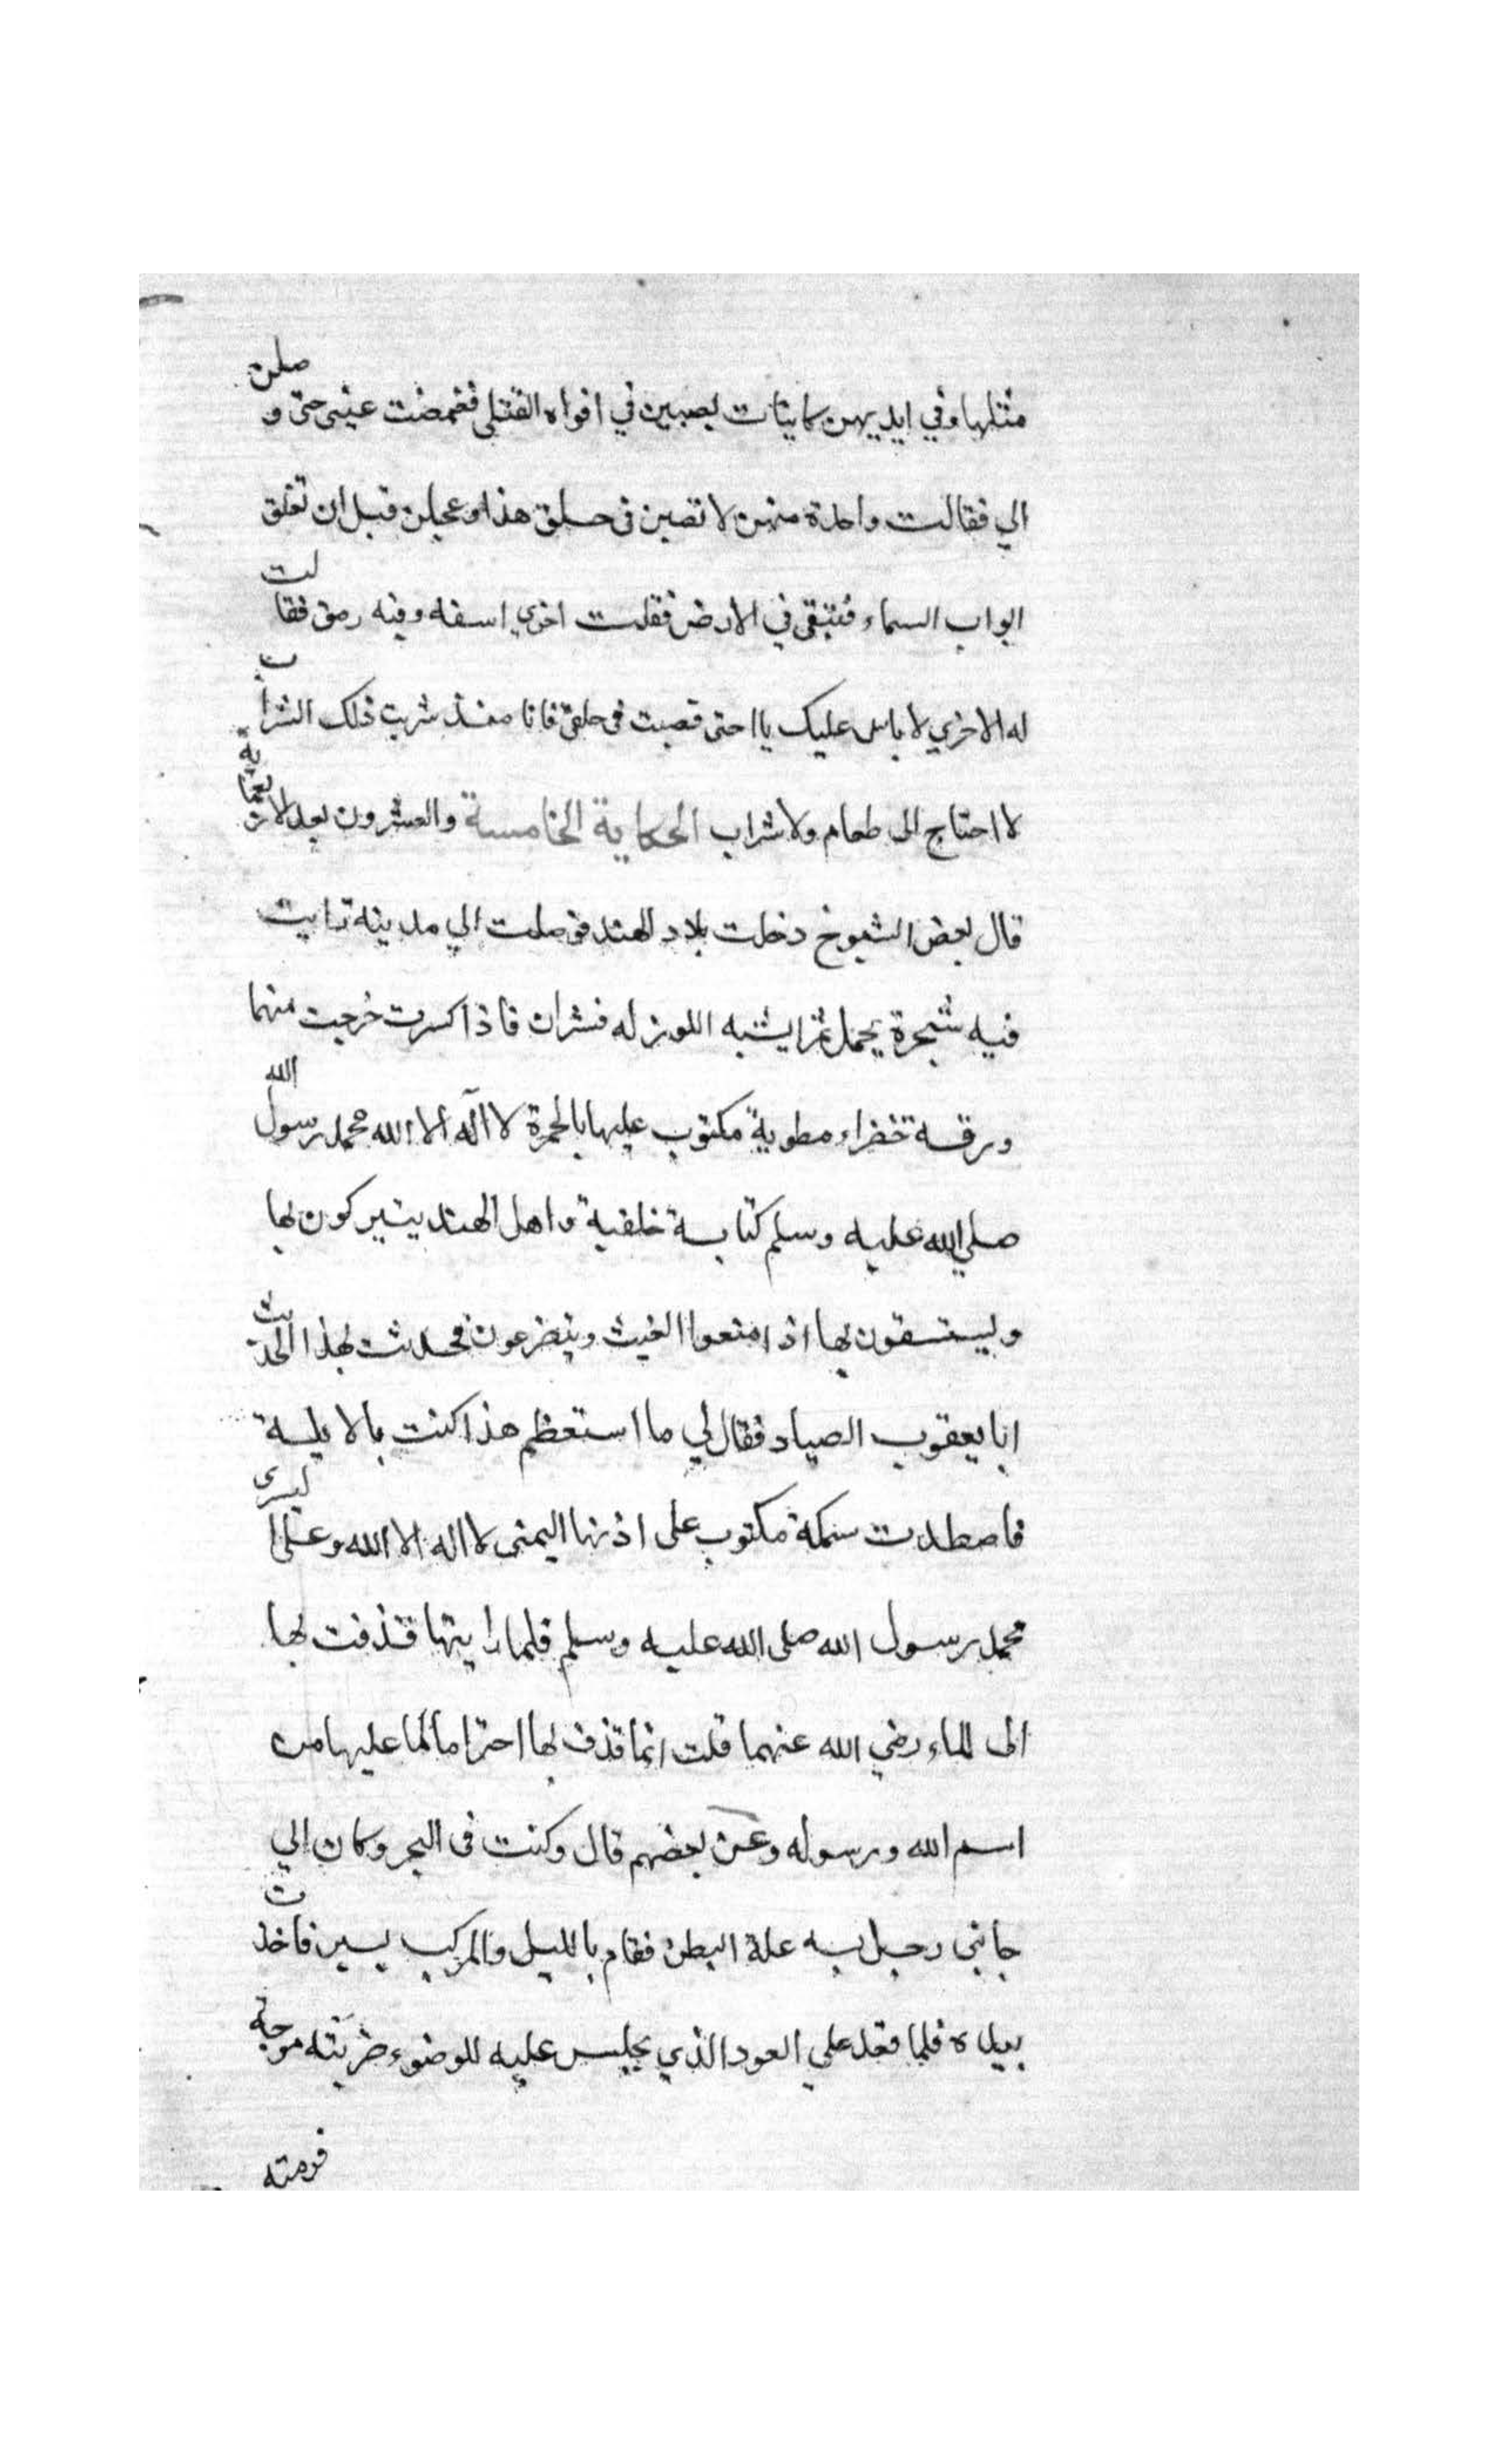 مثلها وفي ايديهن كاينات يصببن في افواه القتلى فغمضت عيني حتى وصلن
الي فقالت واحدة منهن لا تصبن في حلق هذا وعجلن قبل ان تغلق
ابواب السماء فنبقى في الارض فقلت اخري اسقه وفيه رمق فقالت
له الاخري لا باس عليك يا اختى فصبت فى حلقى فانا منذ شربت ذلك الشراب
لا احتاج الى طعام ولا شراب الحكاية الخامسة والعشرون بعد الاربعماية
قال بعض الشيوخ دخلت بلاد الهند فوصلت الي مدينه رايت
فيه شجرة يحمل ثمرا يشبه اللوز له قشران فاذا كسرت خرجت منها
ورقة خضراء مطوية مكتوب عليها بالحمرة لا اله الا الله محمد رسول الله
صلي الله عليه وسلم كتابة خلفية واهل الهند يتبركون بها
ويستسقون بها اذ امنعوا الغيث ويتضرعون فحدثت بهذا الحديث
ابا يعقوب الصياد فقال لي ما استعظم هذا كنت بالايلة
فاصطدت سمكة مكتوب على اذنها اليمنى لا اله الا الله وعلى اليسرى
محمد رسول الله صلى الله عليه وسلم فلما رايتها قذفت بها
الى الماء رضي الله عنهما قلت انما قذف بها احتراما لما عليها من
اسم الله ورسوله وعن بعضهم قال وكنت فى البحر وكان الي
جانبي رجل به علة البطن فقام بالليل والمركب يسير فاخذت
بيده فلما قعد علي العود الذي يجلس عليه للوضوء ضربته موجة
فرمته